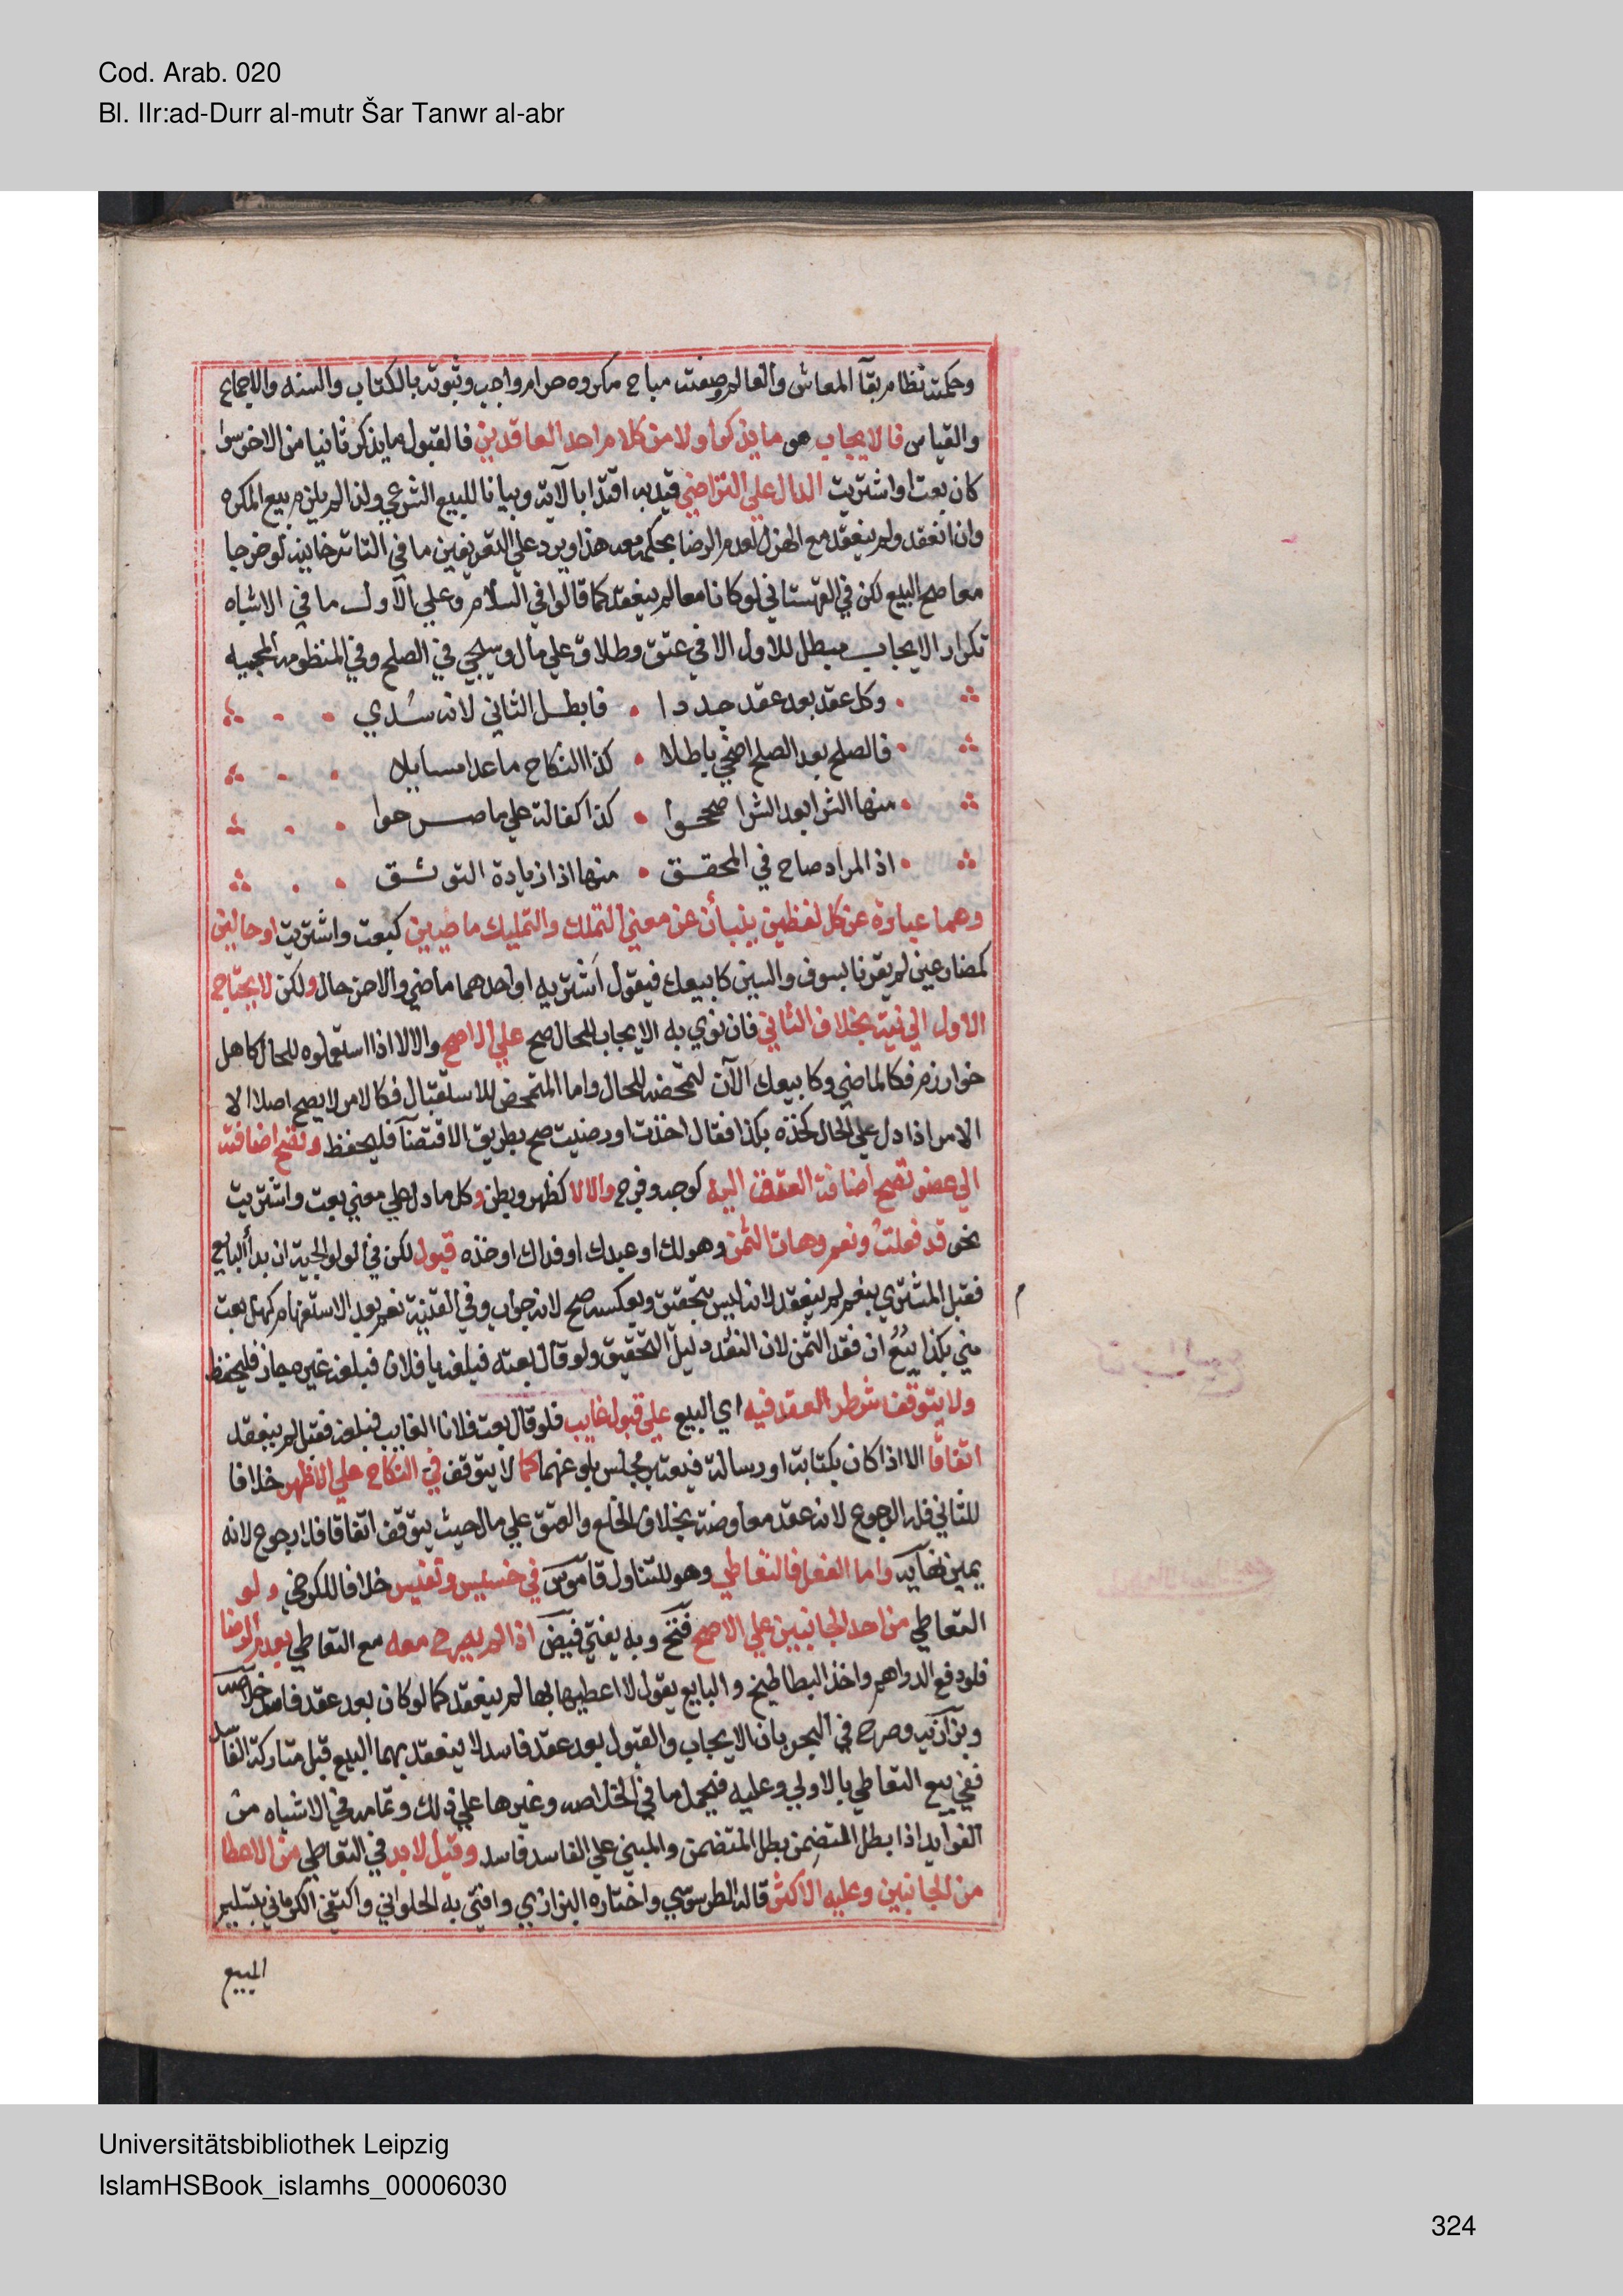 Cod. Arab. 020
Bl. IIr:ad-Durr al-mutr Šar Tanwr al-abr
وحكمته نظام بقآ المعاش والعالم وصفته مباح مكروه حرام واجب وثبوته بالكتاب والسنه والاجماع
والقياس فالايجاب هو ما يذكر اولا من كلام احد العاقدين فالقبول ما يذكر ثانيا من الاخر سوا
كان بعت او اشتريت الدال علي التراضي قيد به اقتدا بالآية وبيانا للبيع الشرعي ولذا لم يلزم بيع المكره
وان انعقد ولم ينعقد مع الهزل لعدم الرضا بحكمه معه هذا ويرد علي التعريفين ما في التاترخانيه لو خرجا
معا صح البيع لكن في القهستاني لو كانا معا لم ينعقد كما قالوا في السلام وعلي الاول ما في الاشباه
تكرار الايجاب مبطل للاول الا في عتق وطلاق علي مال وسيجي في الصلح وفي المنظومه المحبيه
وكل عقد بعد عقد جددا فابطل الثاني لانه سدي
فالصلح بعد الصلح اضحي باطلا كذا النكاح ما عدا مسايلا
منها الشرا بعد الشرا صححوا كذا كفالة علي ما صرحوا
اذ المراد صاح في المحقق منها اذا زيادة التوثق
وهما عبارة عن كل لفظين ينبأن عن معني التملك والتمليك ماضيين كبعت واشتريت او حالين
كمضارعين لم يقرنا بسوف والسين كابيعك فيقول اشتريه او احدهما ماضي والاخر حال ولكن لا يحتاج
الاول الي نية بخلاف الثاني فان نوي به الايجاب للحال صح علي الاصح والا لا اذا استعملوه للحال كاهل
خوارزم فكالماضي وكابيعك الآن لتمحضه للحال واما المتمحض للاستقبال فكالامر لا يصح اصلا الا
الامر اذا دل علي الحال كخذه بكذا فقال اخذت او رضيت صح بطريق الاقتضآ فليحفظ وتصح اضافته
الي عضو تصح اضافة العقد اليه كوجه وفرج والا لا كظهر وبطن وكل ما دل علي معني بعت واشتريت
نحو قد فعلت ونعم وهات الثمن وهو لك او عبدك او فداك او خذه قبول لكن في الولوالجية ان بدأ البايع
فقبل المشتري بنعم لم ينعقد لانه ليس بتحقيق وبعكسه صح لانه جواب وفي القنية نعم بعد الاستفهام كهل بعت
مني بكذا بيع ان نقد الثمن لان النقد دليل التحقيق ولو قال بعته فبلغه يا فلان فبلغه غيره جاز فليحفظ
ولا يتوقف شطر العقد فيه اي البيع علي قبول غايب فلو قال بعت فلانا الغايب فبلغه فقبل لم ينعقد
اتفاقا الا اذا كان بكتابة او رسالة فيعتبر مجلس بلوغهما كما لا يتوقف في النكاح علي الاظهر خلافا
للثاني فله الرجوع لانه عقد معاوضة بخلاف الخلع والعتق علي مال حيث يتوقف اتفاقا فلا رجوع لانه
يمين نهايه واما الفعل فالتعاطي وهو للتناول قاموس في خسيس ونفيس خلافا للكرخي ولو
التعاطي من احد الجانبين علي الاصح فتح وبه يفتي فيض اذا لم يصرح معه مع التعاطي بعدم الرضا
فلو دفع الدراهم واخذ البطاطيخ والبايع يقول لا اعطيها بها لم ينعقد كما لو كان بعد عقد فاسد خلاصه
وبزازيه وصرح في البحر بان الايجاب والقبول بعد عقد فاسد لا ينعقد بهما البيع قبل متاركة الفاسد
ففي بيع التعاطي بالاولي وعليه فيحمل ما في الخلاصه وغيرها علي ذلك وتمامه في الاشباه من
الفوايد اذا بطل المتضمن بطل المتضمن والمبني علي الفاسد فاسد وقيل لا بد في التعاطي من الاعطا
من الجانبين وعليه الاكثر قاله الطرسوسي واختاره البزازي وافتي به الحلواني واكتفي الكرماني بتسليم
المبيع
كتاب البيوع
Universitätsbibliothek Leipzig
IslamHSBook_islamhs_00006030
324